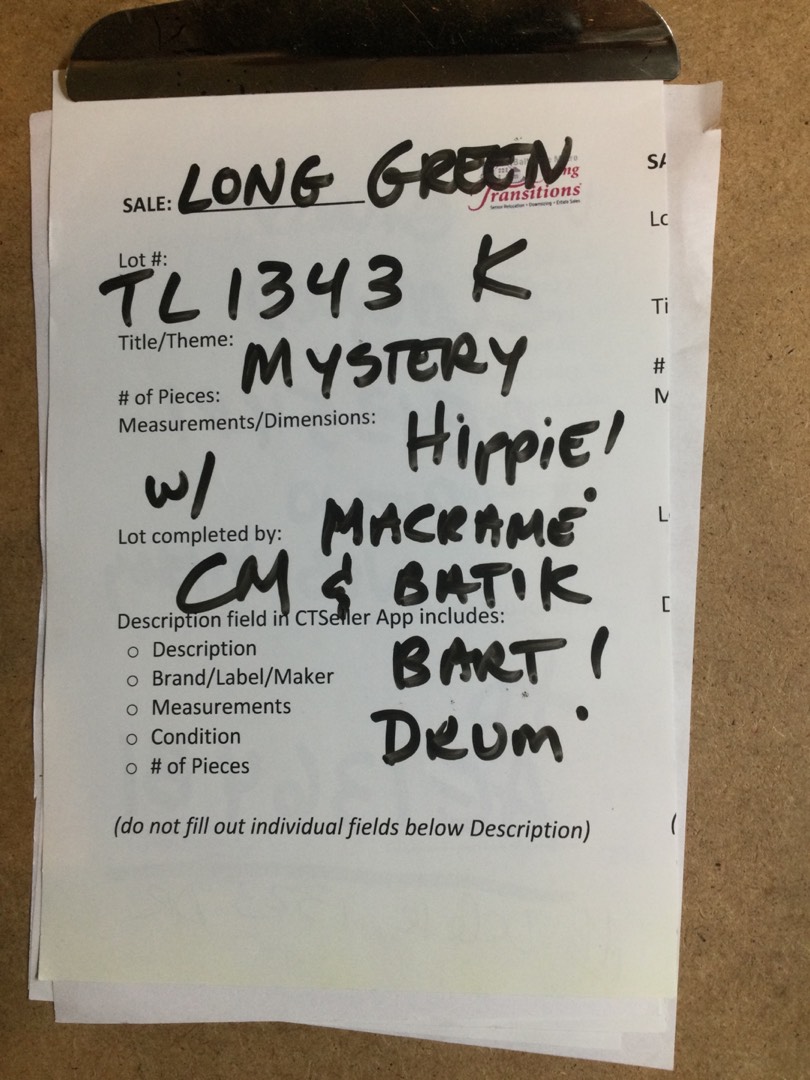 SALE: LONG GREEN
ransitions
Senior Relocation • Downsizing • Estate Sales
Lot #:
TL 1343 K
Title/Theme: MYSTERY
# of Pieces:
Measurements/Dimensions: HIPPIE!
w/
Lot completed by: MACRAME
CM & BATIK
Description field in CTSeller App includes:
○ Description
BART!
○ Brand/Label/Maker
○ Measurements
DRUM
○ Condition
○ # of Pieces
(do not fill out individual fields below Description)
SA
Lo
Ti
#
M
L
D
(